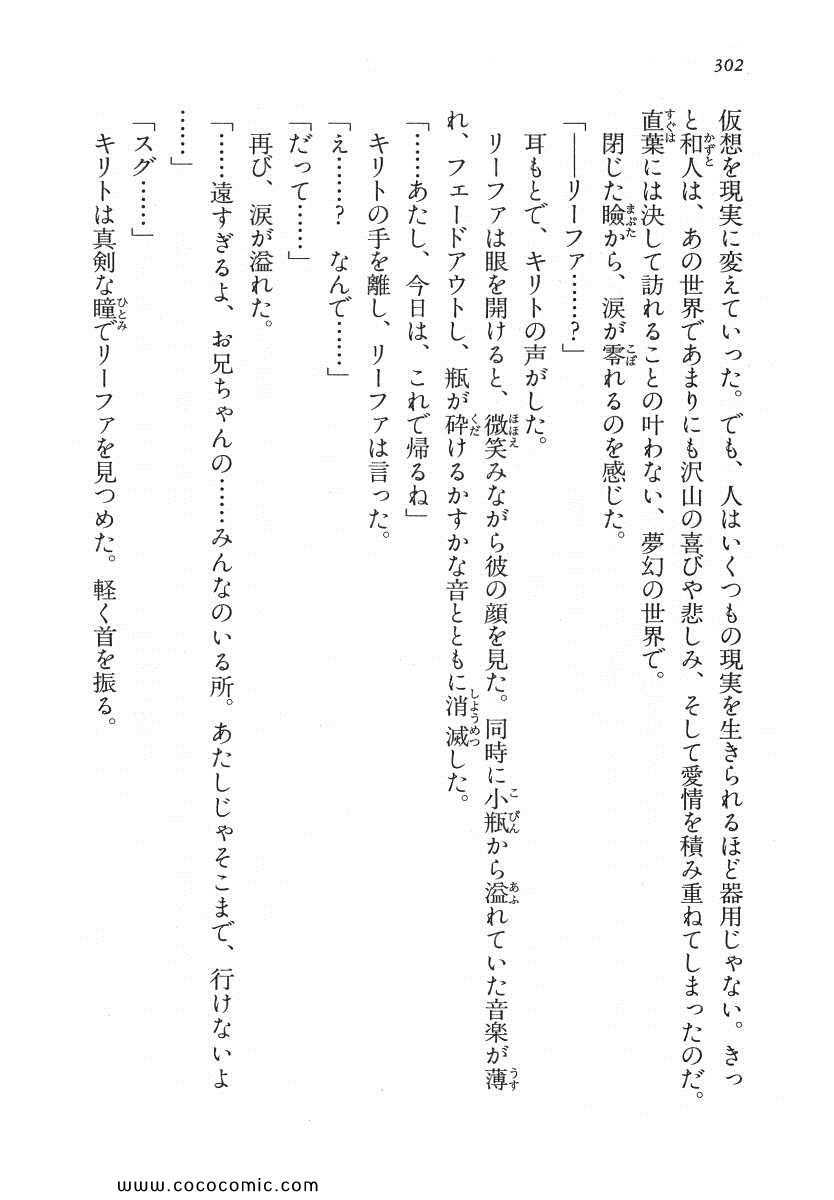 302
仮想を現実に変えていった。でも、人はいくつもの現実を生きられるほど器用じゃない。きっ
と和人は、あの世界であまりにも沢山の喜びや悲しみ、そして愛情を積み重ねてしまったのだ。
直葉には決して訪れることの叶わない、夢幻の世界で。
閉じた瞼から、涙が零れるのを感じた。
「――リーファ……?」
耳もとで、キリトの声がした。
リーファは眼を開けると、微笑みながら彼の顔を見た。同時に小瓶から溢れていた音楽が薄
れ、フェードアウトし、瓶が砕けるかすかな音とともに消滅した。
「……あたし、今日は、これで帰るね」
キリトの手を離し、リーファは言った。
「え……? なんで……」
「だって……」
再び、涙が溢れた。
「……遠すぎるよ、お兄ちゃんの……みんなのいる所。あたしじゃそこまで、行けないよ
……」
「スグ……」
キリトは真剣な瞳でリーファを見つめた。軽く首を振る。
www.cococomic.com